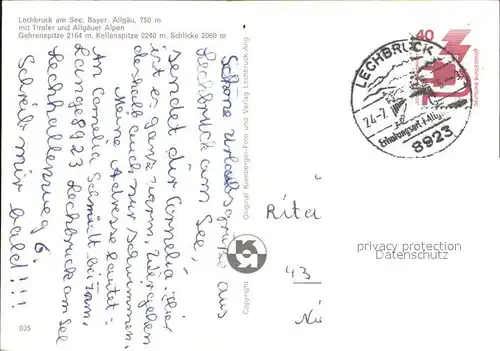 Lechbruck am See, Bayer. Allgäu, 750 m
mit Tiroler und Allgäuer Alpen
Gehrenspitze 2164 m, Kellenspitze 2240 m, Schlicke 2060 m
Schöne Urlaubsgrüße aus
Lechbruck am See,
sendet dir Cornelia. Hier
ist es ganz warm. Wir gehen
deshalb auch nur schwimmen.
Meine Adresse lautet:
An Cornelia Schmidt bei Fam.
Lange 8923 Lechbruck am See
Lechhallenweg 6.
Schreib mir bald!!!
035
Original Kienberger-Foto und Verlag Lechbruck/Allg
Copyright
K
40
LECHBRUCK
24.7.
Erholungsort i. Allg.
8923
Rita
43
privacy protection
Datenschutz